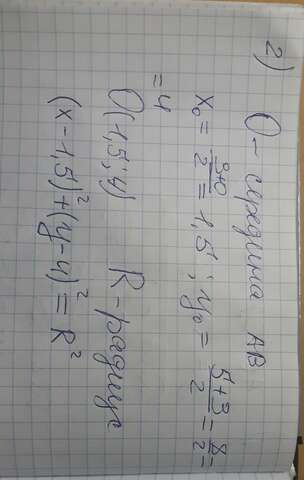 2) O – середина AB
x₀ = 3+0/2 = 1,5 ; y₀ = 5+3/2 = 8/2 =
= 4
O(1,5; 4) R – радиус
(x – 1,5)² + (y – 4)² = R²